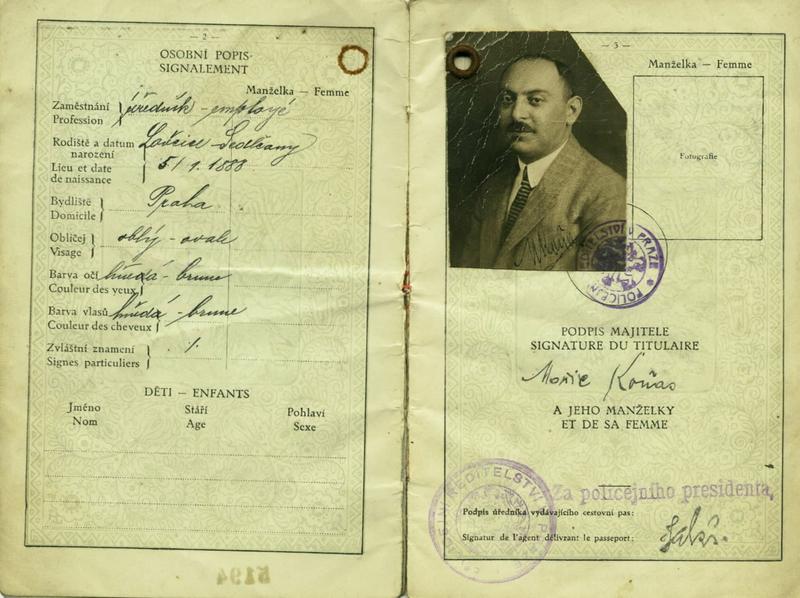 — 2 —
OSOBNÍ POPIS
SIGNALEMENT
Manželka — Femme
Zaměstnání
Profession
úředník - employé
Rodiště a datum
narození
Lieu et date
de naissance
Lovčice - Sedlčany
5/1. 1888
Bydliště
Domicile
Praha
Obličej
Visage
oblý - ovale
Barva očí
Couleur des yeux
hnědá - brune
Barva vlasů
Couleur des cheveux
hnědá - brune
Zvláštní znamení
Signes particuliers
·/.
DĚTI — ENFANTS
Jméno Stáří Pohlaví
Nom Age Sexe
5194
— 3 —
Manželka — Femme
Fotografie
POLICEJNÍ ŘEDITELSTVÍ V PRAZE
PODPIS MAJITELE
SIGNATURE DU TITULAIRE
A JEHO MANŽELKY
ET DE SA FEMME
POLICEJNÍ ŘEDITELSTVÍ V PRAZE
Za policejního presidenta,
Podpis úředníka vydávajícího cestovní pas:
Signatur de l'agent délivrant le passeport: